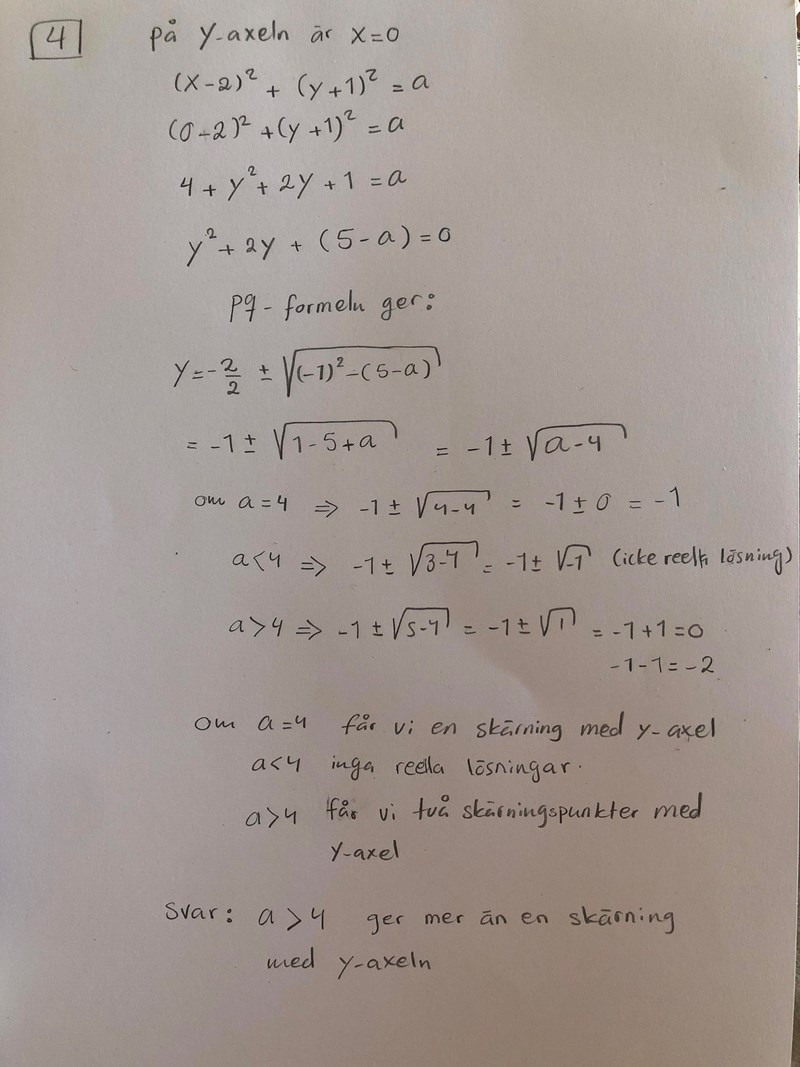 4 på y-axeln är x=0
(x-2)² + (y+1)² = a
(0-2)² + (y+1)² = a
4 + y² + 2y + 1 = a
y² + 2y + (5-a) = 0
Pq-formeln ger:
y = -2/2 ± √((-1)² - (5-a))
= -1 ± √(1-5+a) = -1 ± √(a-4)
om a=4 ⇒ -1 ± √(4-4) = -1 ± 0 = -1
a<4 ⇒ -1 ± √(3-4) = -1 ± √-1 (icke reella lösning)
a>4 ⇒ -1 ± √(5-4) = -1 ± √1 = -1+1=0
-1-1=-2
om a=4 får vi en skärning med y-axel
a<4 inga reella lösningar.
a>4 får vi två skärningspunkter med
y-axel
Svar: a>4 ger mer än en skärning
med y-axeln